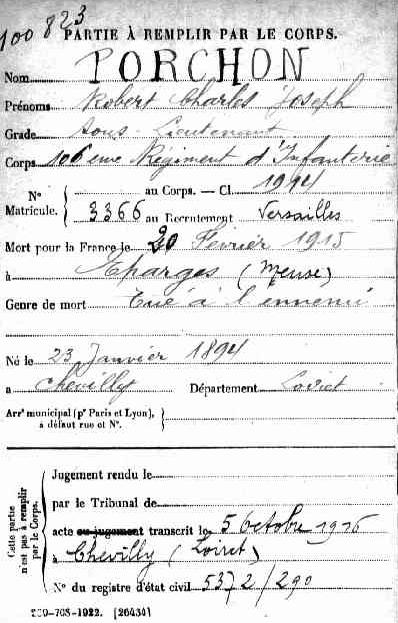 100 823
PARTIE À REMPLIR PAR LE CORPS.
Nom PORCHON
Prénoms Robert Charles Joseph
Grade Sous-Lieutenant
Corps 106eme Régiment d'Infanterie
N° Matricule. { au Corps. — Cl. 1914
3366 au Recrutement Versailles
Mort pour la France le 20 Février 1915
à Eparges (Meuse)
Genre de mort Tué à l'ennemi
Né le 23 Janvier 1894
a Chevilly Département Loiret
Arrt municipal (pr Paris et Lyon),
à défaut rue et N°.
Cette partie
n'est pas à remplir
par le Corps.
Jugement rendu le
par le Tribunal de
acte ou jugement transcrit le 5 Octobre 1916
à Chevilly (Loiret)
N° du registre d'état civil 5372/290
[26434]